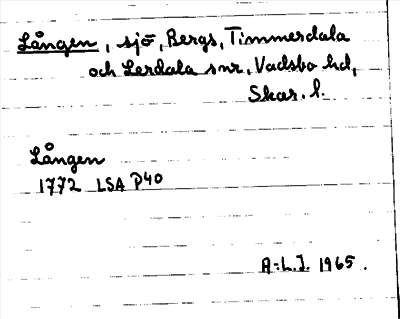 Lången, sjö, Bergs, Timmerdala
och Lerdala snr, Vadsbo hd,
Skar. l.
Lången
1772 LSA P40
A:L.J. 1965.